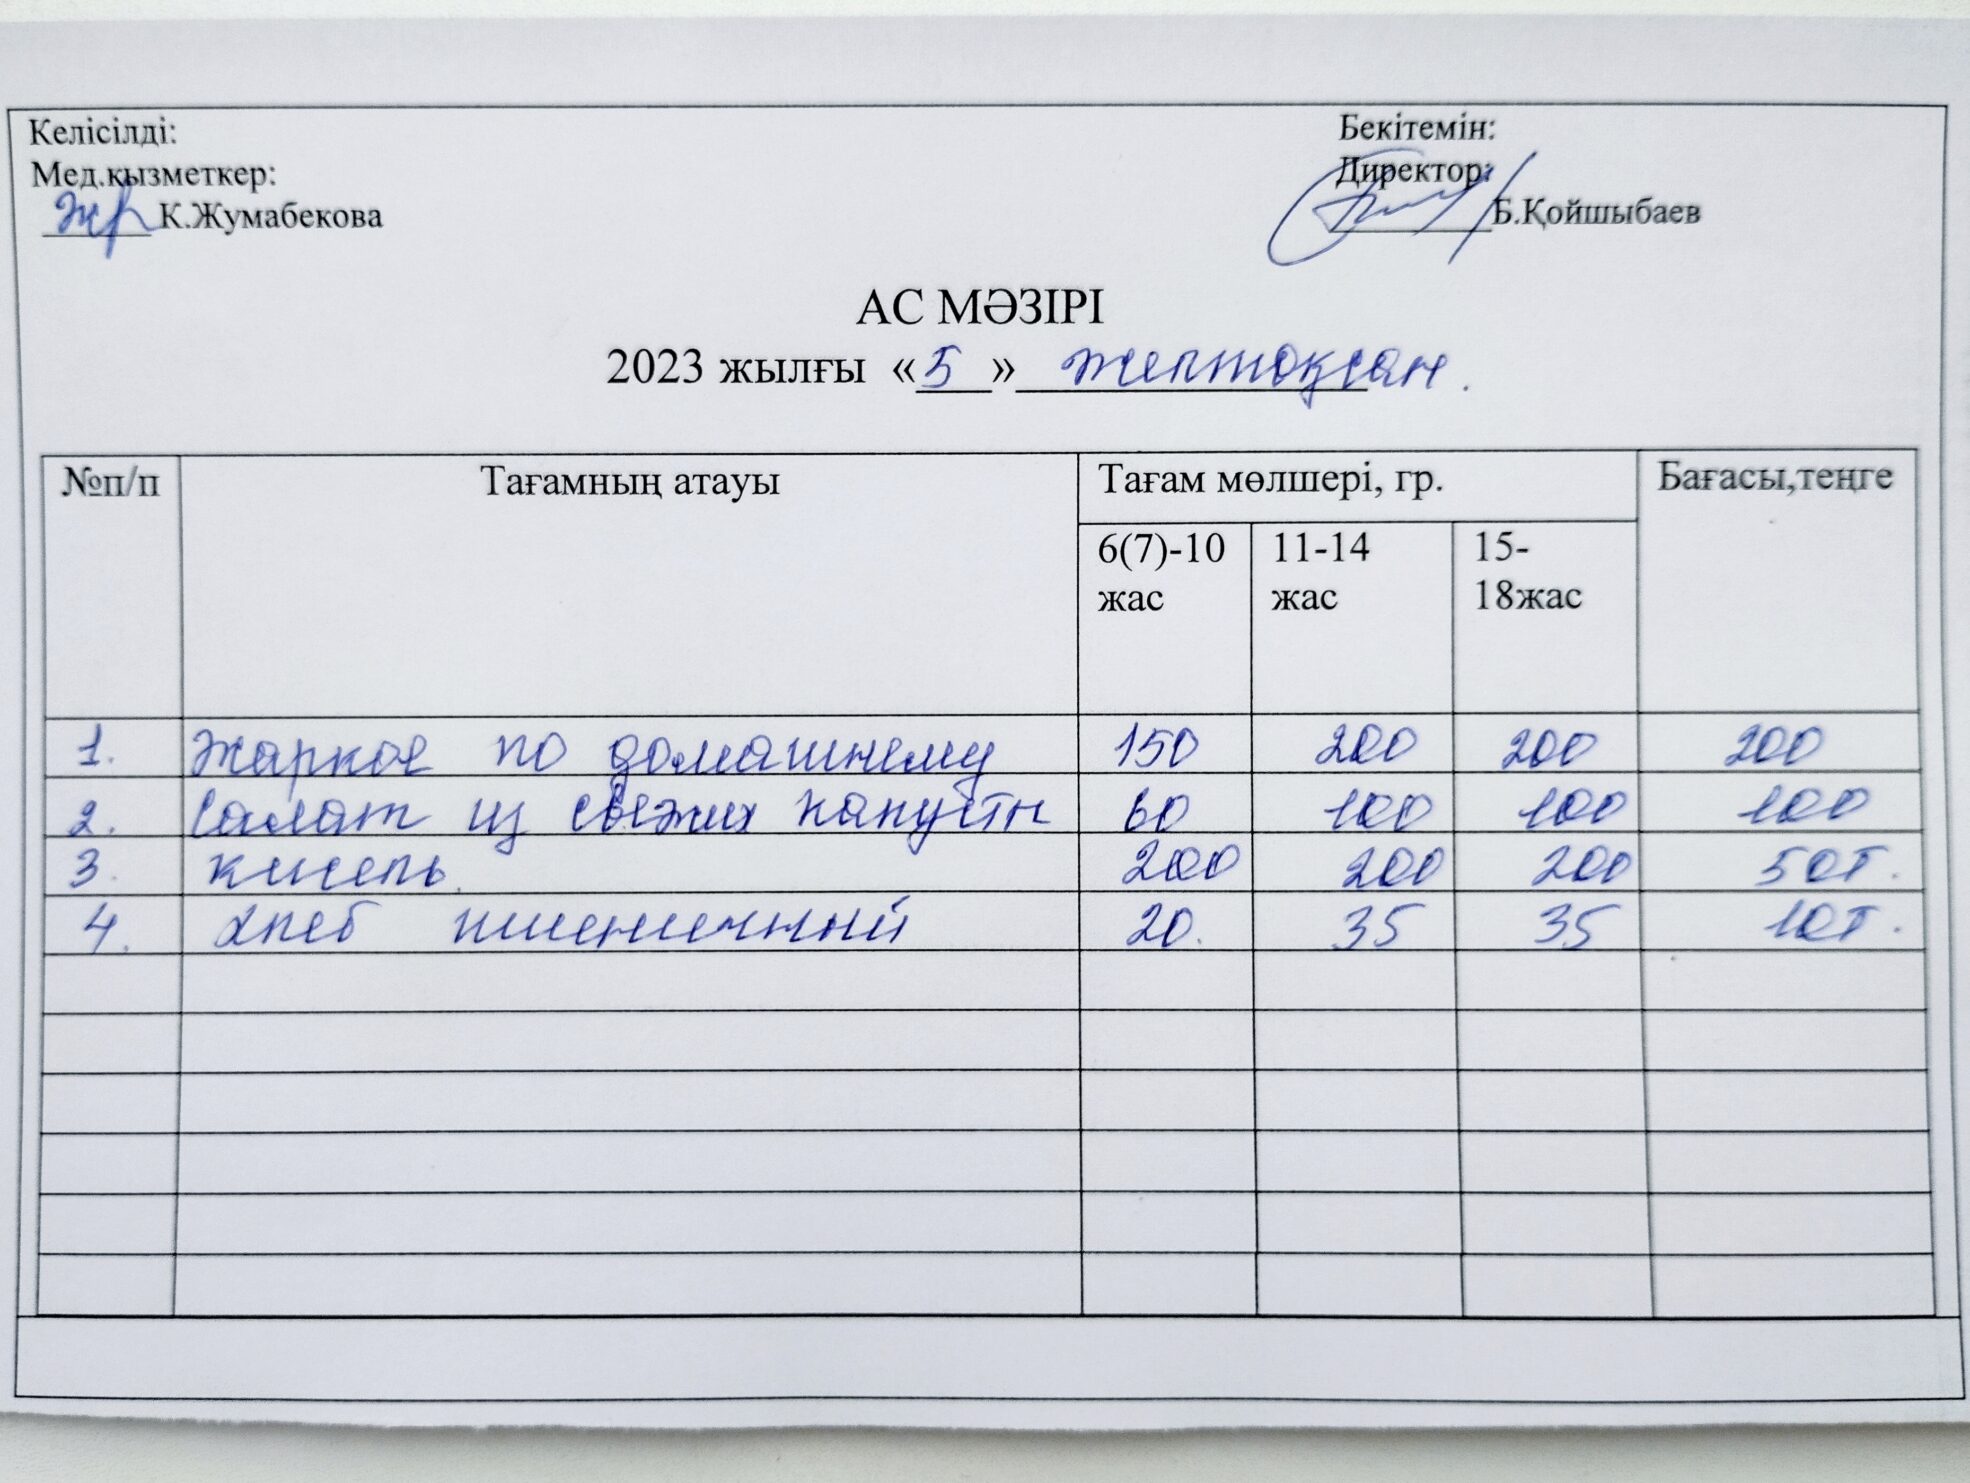 Келісілді:
Мед.қызметкер:
К.Жумабекова
Бекітемін:
Директор:
Б.Қойшыбаев
АС МӘЗІРІ
2023 жылғы «5» желтоқсан.
№п/п Тағамның атауы Тағам мөлшері, гр. Бағасы,теңге
6(7)-10 жас 11-14 жас 15-18жас
1. Жаркое по домашнему 150 200 200 200
2. Салат из свежих капусты 60 100 100 100
3. кисель. 200 200 200 50т.
4. хлеб пшеничный 20. 35 35 10т.